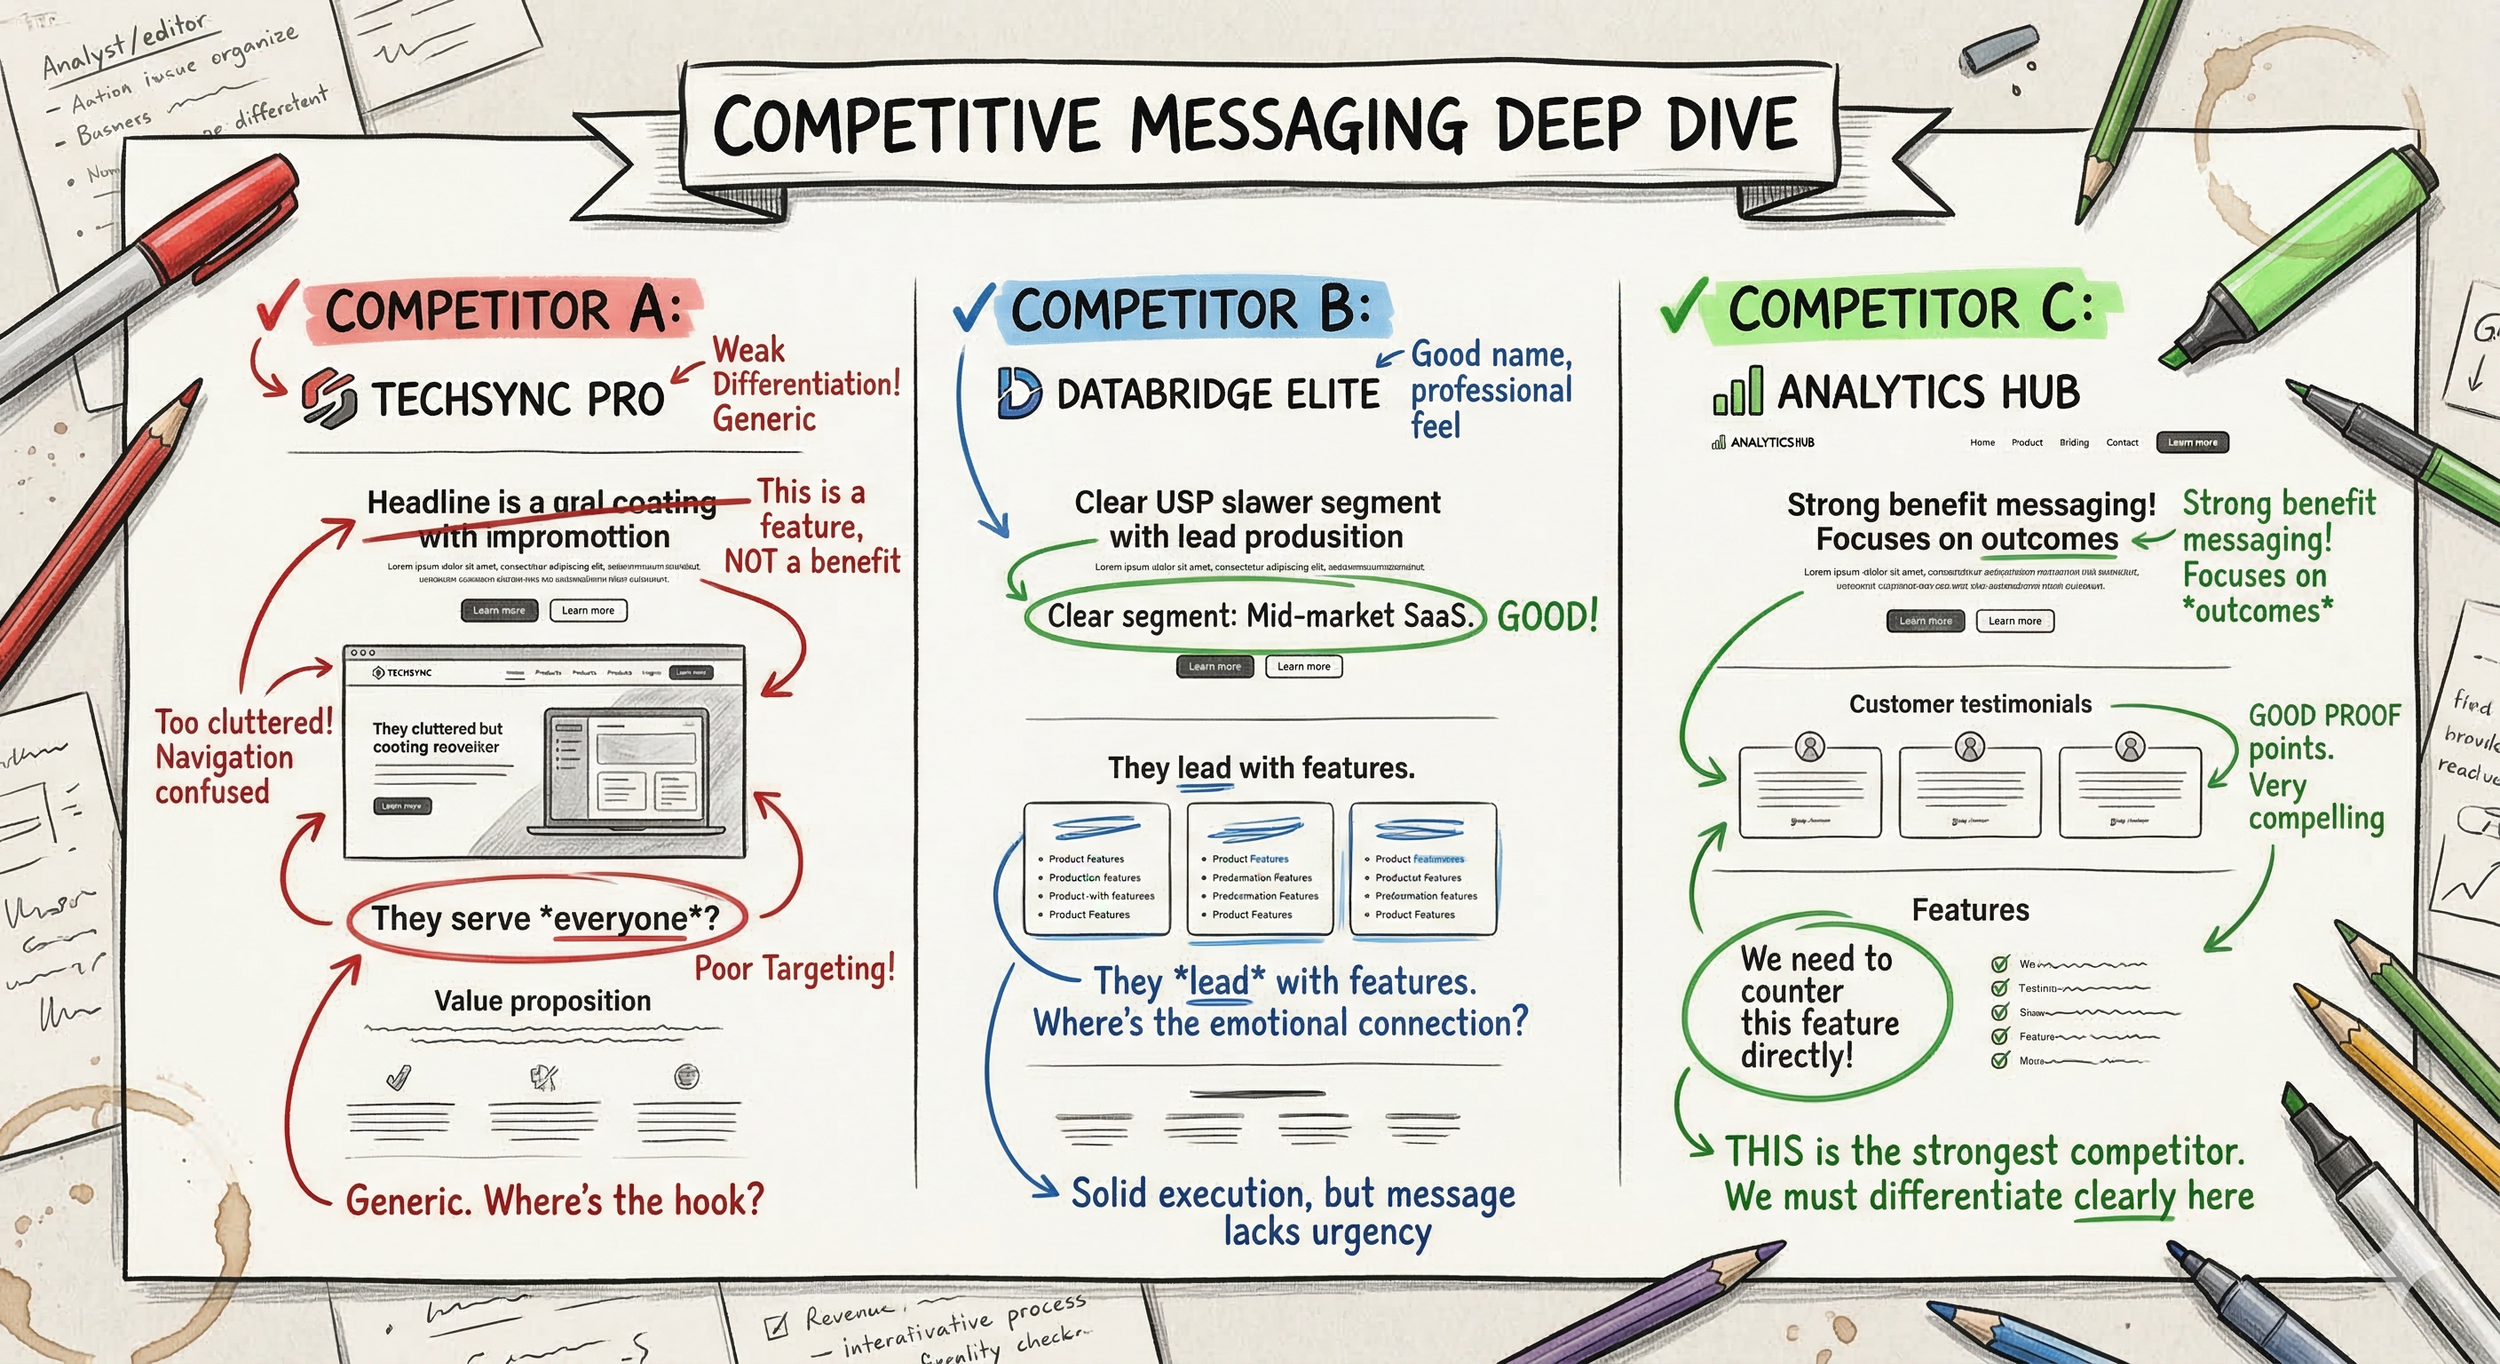 Analyst/editor
- Aation iusue organize
- Busners
differetent
COMPETITIVE MESSAGING DEEP DIVE
COMPETITOR A:
TECHSYNC PRO
Weak
Differentiation!
Generic
Headline is a gral coating
with impromottion
This is a
feature,
NOT a benefit
Lorem ipsum dolor sit amet, consectetur adipiscing elit,
Learn more
Learn more
TECHSYNC
Products
Products
Products
Learn more
They cluttered but
cooting reoveiker
Learn more
Too cluttered!
Navigation
confused
They serve *everyone*?
Poor Targeting!
Value proposition
Generic. Where's the hook?
COMPETITOR B:
DATABRIDGE ELITE
Good name,
professional
feel
Clear USP slawer segment
with lead produsition
Lorem ipsum dolor sit amet, consectetur adipiscing elit,
Clear segment: Mid-market SaaS.
GOOD!
Learn more
Learn more
They lead with features.
• Product features
• Production features
• Product-with featurees
• Product Features
• Product Features
• Predamation Features
• Predcarmation Features
• Product Features
• Product
• Productut Features
• Prefoumation features
• Product Features
They *lead* with features.
Where's the emotional connection?
Solid execution, but message
lacks urgency
COMPETITOR C:
ANALYTICS HUB
ANALYTICSHUB
Home
Product
Briding
Contact
Learn more
Strong benefit messaging!
Focuses on outcomes
Strong benefit
messaging!
Focuses on
*outcomes*
Lorem ipsum dolor sit amet,
Learn more
Learn more
Customer testimonials
GOOD PROOF
points.
Very
compelling
Features
We need to
counter
this feature
directly!
We
Testinin
Feature
THIS is the strongest competitor.
We must differentiate clearly here
Revenue
— interafivative process